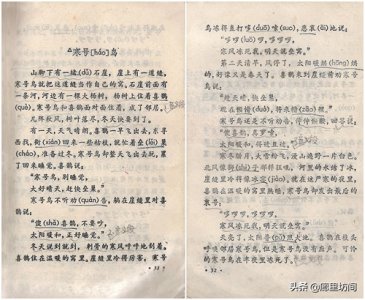 *寒号[háo]鸟
山脚下有一堵(dǔ)石崖,崖上有一道缝,
寒号鸟就把这道缝当作自己的窝。石崖前面有
一条河,河边有一棵大杨树,杨树上住着喜鹊
(què)。寒号鸟和喜鹊面对面住着,成了邻居。
几阵秋风,树叶落尽,冬天快要到了。
有一天,天气晴朗。喜鹊一早飞出去,东寻
西找,衔(xián)回来一些枯枝,就忙着垒(lěi)巢
(cháo),准备过冬。寒号鸟却整天飞出去玩,累
了回来睡觉。喜鹊说:
“寒号鸟,别睡觉,
大好晴天,赶快垒巢。”
寒号鸟不听劝(quàn)告,躺在崖缝里对喜
鹊说:
“傻(shǎ)喜鹊,不要吵,
太阳暖和,正好睡觉。”
冬天说到就到,刺骨的寒风呼呼地刮着。
喜鹊住在温暖的窝里,崖缝里冷得厉害。寒号
鸟冻得直打哆(duō)嗦(suo),悲哀(āi)地说:
“哆啰(luō)啰,哆啰啰,
寒风冻死我,明天就垒窝。”
第二天清早,风停了,太阳暖烘(hōng)烘
的,好像又是春天了。喜鹊来到崖缝前劝寒号
鸟:
“趁天晴,快垒巢,
寒号鸟还是不听劝告,伸伸懒腰,回答说:
“傻喜鹊,真啰嗦,
太阳暖和,得过且过。”
寒冬腊月,大雪纷飞,漫山遍野一片白色。
北风像狮子一样狂吼,河里的水结了冰,
崖缝里冷得像冰窖(jiào)。就在这严寒的夜里,
喜鹊在温暖的窝里熟睡,寒号鸟却发出最后的
哀号:
“哆啰啰,哆啰啰,
寒风冻死我,明天就垒窝。”
天亮了,太阳普(pǔ)照大地。喜鹊在枝头
呼唤邻居寒号鸟,但是寒号鸟没有应声。可怜
的寒号鸟在半夜里冻死了。
32
头条 @哪里坊间